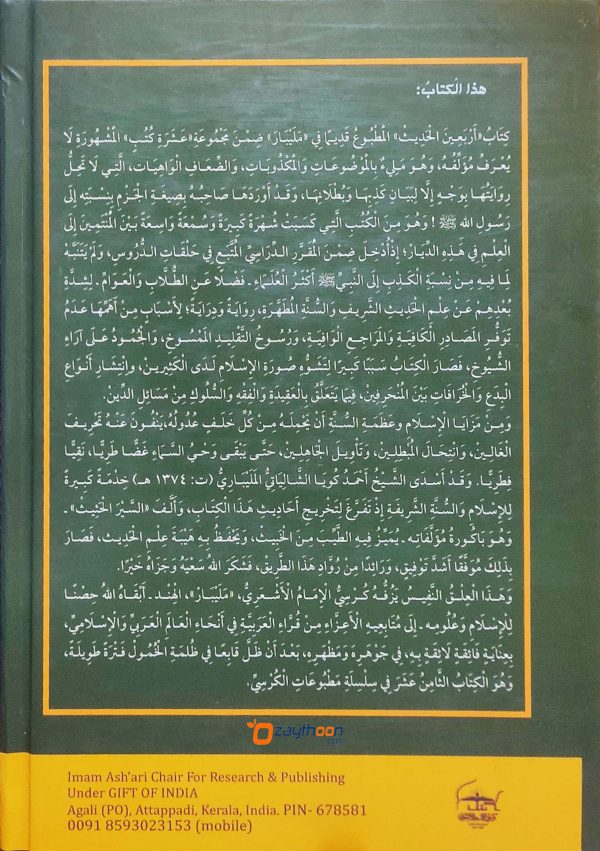 هٰذا الْكتابُ:
كِتَابُ «أَرْبَعِينَ الْحَدِيثَ» الْمَطْبُوعُ قَدِيمًا فِي «مَلَيْبَارَ» ضِمْنَ مَجْمُوعَةِ «عَشَرَةِ كُتُبٍ» الْمَشْهُورَةِ لَا
يُعْرَفُ مُؤَلِّفُهُ، وَهُوَ مَلِيءٌ بِالْمَوْضُوعَاتِ وَالْمَكْذُوبَاتِ، وَالضِّعَافِ الْوَاهِيَاتِ، الَّتِي لَا تَحِلُّ
رِوَايَتُهَا بِوَجْهٍ إِلَّا لِبَيَانِ كَذِبِهَا وَبُطْلَانِهَا، وَقَدْ أَوْرَدَهَا صَاحِبُهُ بِصِيغَةِ الْجَزْمِ بِنِسْبَتِهِ إِلَى
رَسُولِ اللهِ ﷺ! وَهُوَ مِنَ الْكُتُبِ الَّتِي كَسَبَتْ شُهْرَةً كَبِيرَةً وَسُمْعَةً وَاسِعَةً بَيْنَ الْمُنْتَمِينَ إِلَى
الْعِلْمِ فِي هَذِهِ الدِّيَارِ؛ إِذْ أُدْخِلَ ضِمْنَ الْمُقَرَّرِ الدِّرَاسِيِّ الْمُتَّبَعِ فِي حَلَقَاتِ الدُّرُوسِ، وَلَمْ يَتَنَبَّهْ
لِمَا فِيهِ مِنْ نِسْبَةِ الْكَذِبِ إِلَى النَّبِيِّ ﷺ أَكْثَرُ الْعُلَمَاءِ - فَضْلًا عَنِ الطُّلَّابِ وَالْعَوَامِّ - لِشِدَّةِ
بُعْدِهِمْ عَنْ عِلْمِ الْحَدِيثِ الشَّرِيفِ وَالسُّنَّةِ الْمُطَهَّرَةِ، رِوَايَةً وَدِرَايَةً؛ لِأَسْبَابٍ مِنْ أَهَمِّهَا عَدَمُ
تَوَفُّرِ الْمَصَادِرِ الْكَافِيَةِ وَالْمَرَاجِعِ الْوَافِيَةِ، وَرُسُوخُ التَّقْلِيدِ الْمَمْسُوخِ، وَالْجُمُودُ عَلَى آرَاءِ
الشُّيُوخِ، فَصَارَ الْكِتَابُ سَبَبًا كَبِيرًا لِتَشَوُّهِ صُورَةِ الْإِسْلَامِ لَدَى الْكَثِيرِينَ، وَانْتِشَارِ أَنْوَاعِ
الْبِدَعِ وَالْخُرَافَاتِ بَيْنَ الْمُنْحَرِفِينَ، فِيمَا يَتَعَلَّقُ بِالْعَقِيدَةِ وَالْفِقْهِ وَالسُّلُوكِ مِنْ مَسَائِلِ الدِّينِ.
وَمِنْ مَزَايَا الْإِسْلَامِ وَعَظَمَةِ السُّنَّةِ أَنْ يَحْمِلَهُ مِنْ كُلِّ خَلَفٍ عُدُولُهُ، يَنْفُونَ عَنْهُ تَحْرِيفَ
الْغَالِينَ، وَانْتِحَالَ الْمُبْطِلِينَ، وَتَأْوِيلَ الْجَاهِلِينَ، حَتَّى يَبْقَى وَحْيُ السَّمَاءِ غَضًّا طَرِيًّا، نَقِيًّا
فِطَرِيًّا. وَقَدْ أَسْدَى الشَّيْخُ أَحْمَدُ كُويَا الشَّالِيَاتِيُّ الْمَلَيْبَارِيُّ (ت: ١٣٧٤ هـ) خِدْمَةً كَبِيرَةً
لِلْإِسْلَامِ وَالسُّنَّةِ الشَّرِيفَةِ إِذْ تَفَرَّغَ لِتَخْرِيجِ أَحَادِيثِ هَذَا الْكِتَابِ، وَأَلَّفَ «السَّيْرَ الْحَثِيثَ» -
وَهُوَ بَاكُورَةُ مُؤَلَّفَاتِهِ - يُمَيِّزُ فِيهِ الطَّيِّبَ مِنَ الْخَبِيثِ، وَيَحْفَظُ بِهِ هَيْبَةَ عِلْمِ الْحَدِيثِ، فَصَارَ
بِذَلِكَ مُوَفَّقًا أَشَدَّ تَوْفِيقٍ، وَرَائِدًا مِنْ رُوَّادِ هَذَا الطَّرِيقِ، فَشَكَرَ اللهُ سَعْيَهُ وَجَزَاهُ خَيْرًا.
وَهَذَا الْعِلْقُ النَّفِيسُ يَزُفُّهُ كُرْسِيُّ الْإِمَامِ الْأَشْعَرِيِّ، «مَلَيْبَارَ»، الْهِنْدِ - أَبْقَاهُ اللهُ حِصْنًا
لِلْإِسْلَامِ وَعُلُومِهِ - إِلَى مُتَابِعِيهِ الْأَعِزَّاءِ مِنْ قُرَّاءِ الْعَرَبِيَّةِ فِي أَنْحَاءِ الْعَالَمِ الْعَرَبِيِّ وَالْإِسْلَامِيِّ،
بِعِنَايَةٍ فَائِقَةٍ لَائِقَةٍ بِهِ، فِي جَوْهَرِهِ وَمَظْهَرِهِ، بَعْدَ أَنْ ظَلَّ قَابِعًا فِي ظُلْمَةِ الْخُمُولِ فَتْرَةً طَوِيلَةً،
وَهُوَ الْكِتَابُ الثَّامِنُ عَشَرَ فِي سِلْسِلَةِ مَطْبُوعَاتِ الْكُرْسِيِّ.
Ozaythoon
.com
Imam Ash'ari Chair For Research & Publishing
Under GIFT OF INDIA
Agali (PO), Attappadi, Kerala, India. PIN- 678581
0091 8593023153 (mobile)